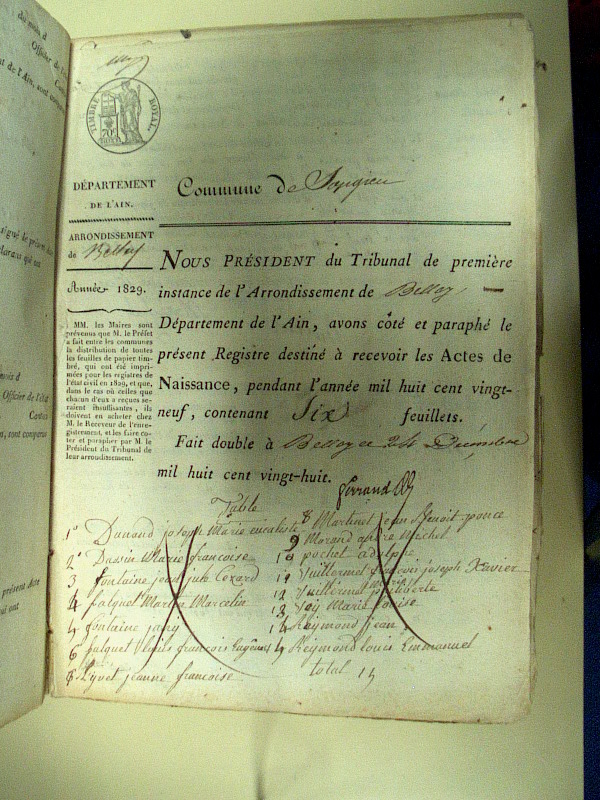 du mois d
Officier de l'
nt de l'Ain, sont
TIMBRE ROYAL
70c
DÉPARTEMENT
DE L'AIN.
Commune de
ARRONDISSEMENT
de Belley
Année 1829.
MM. les Maires sont
prévenus que M. le Préfet
a fait entre les communes
la distribution de toutes
les feuilles de papier timbré,
qui ont été imprimées
pour les registres de
l'état civil en 1829, et que,
dans le cas où celles que
chacun d'eux a reçues seraient
insuffisantes, ils
doivent en acheter chez
M. le Receveur de l'enregistrement,
et les faire coter
et parapher par M. le
Président du Tribunal de
leur arrondissement.
NOUS PRÉSIDENT du Tribunal de première
instance de l'Arrondissement de Belley
Département de l'Ain, avons côté et paraphé le
présent Registre destiné à recevoir les Actes de
Naissance, pendant l'année mil huit cent vingt-
neuf, contenant Six feuillets.
Fait double à Belley ce 24 Décembre
mil huit cent vingt-huit.
Table
1° Durand joseph Marie
2° Dassin Marie françoise
3 fontaine jean
4 falquet Martin Marcelin
4 fontaine
6 falquet Louis françois Eugène
8 jeanne francoise
8 Martinet jean Benoit ponce
9 Morand andré Michel
10 pochet adolphe
Vuillermet françois joseph Xavier
12 Vuillermet philiberte
13 Marie Louise
14 Reymond jean
14 Reymond Louis Emmanuel
total 14
Officier de l'
Canton
, sont comparus
présent Acte